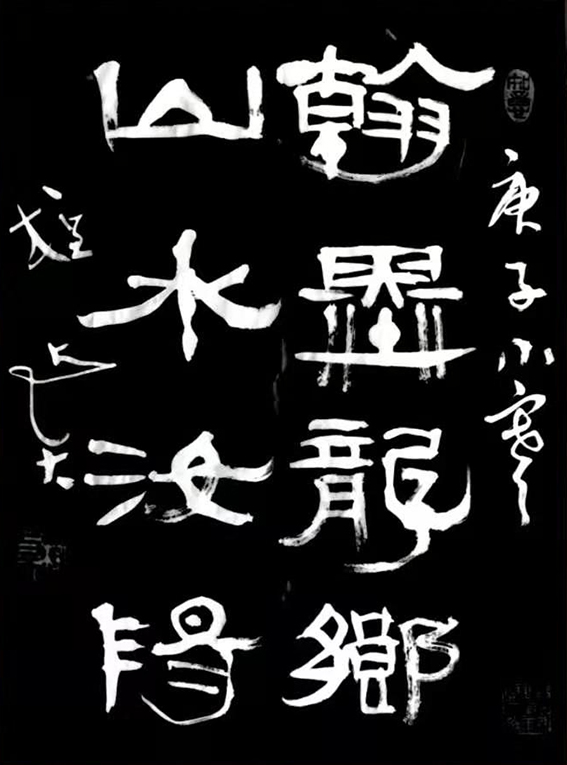 庚子小寒
翰墨龍鄉
山水汝陽